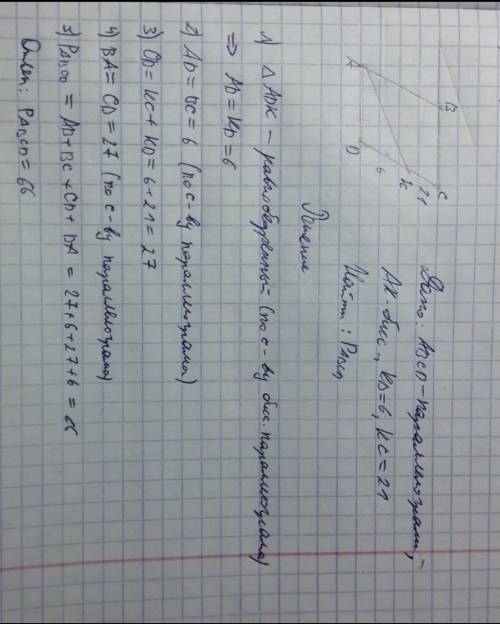 Дано: ABCD – параллелограмм,
AK – бисс, KD=6, KC=21
Найти: PABCD
A
B
C
D
K
6
21
Решение
1) △ADK – равнобедренный (по с-ву бис. параллелограма)
=> AD=KD=6
2) AD=BC=6 (по с-ву параллелограма)
3) CD=KC+KD=6+21=27
4) BA=CD=27 (по с-ву параллелограма)
5) PABCD = AB+BC+CD+DA = 27+6+27+6=66
Ответ: PABCD=66